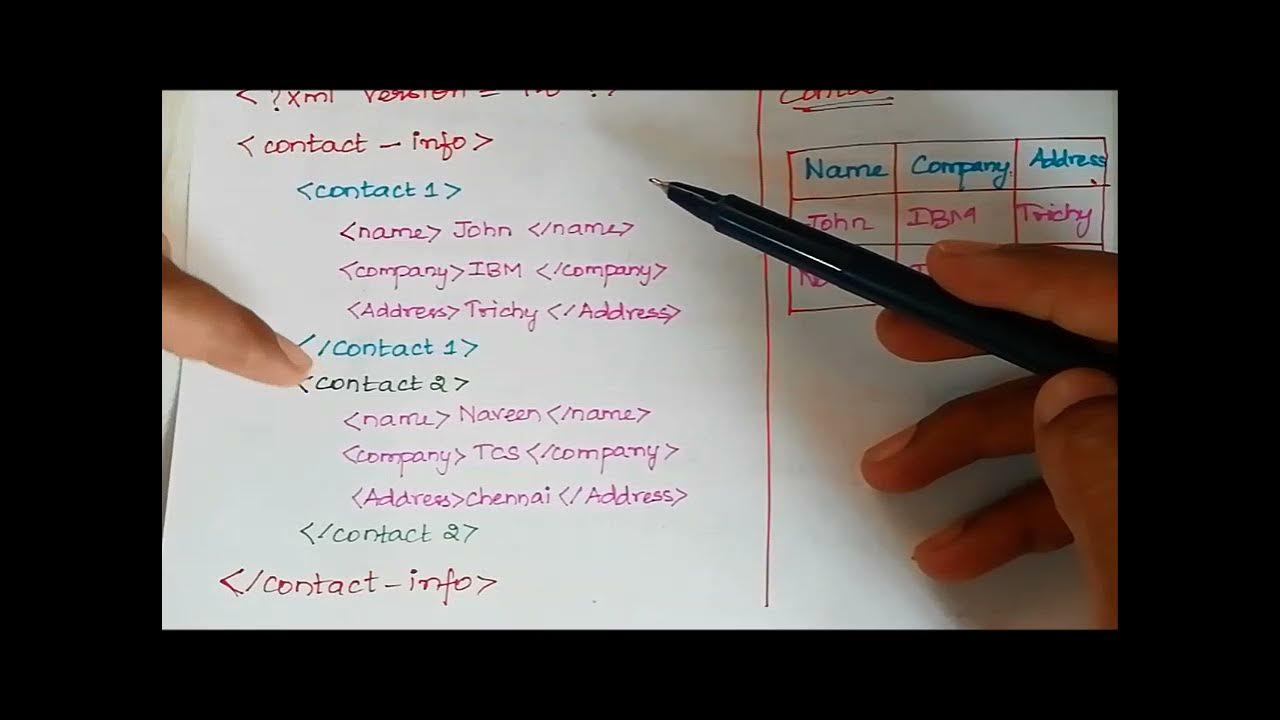 <?xml version =
<contact-info>
<contact 1>
<name> John </name>
<company> IBM </company>
<Address> Trichy </Address>
</contact 1>
<contact 2>
<name> Naveen </name>
<company> TCS </company>
<Address> chennai </Address>
</contact 2>
</contact-info>
Name Company Address
John IBM Trichy